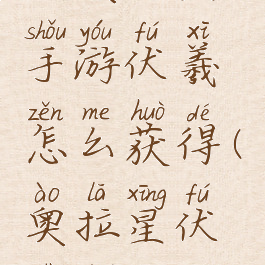 shǒu yóu fú xī
手游伏羲
zěn me huò dé
怎么获得(
ào lā xīng fú
奥拉星伏